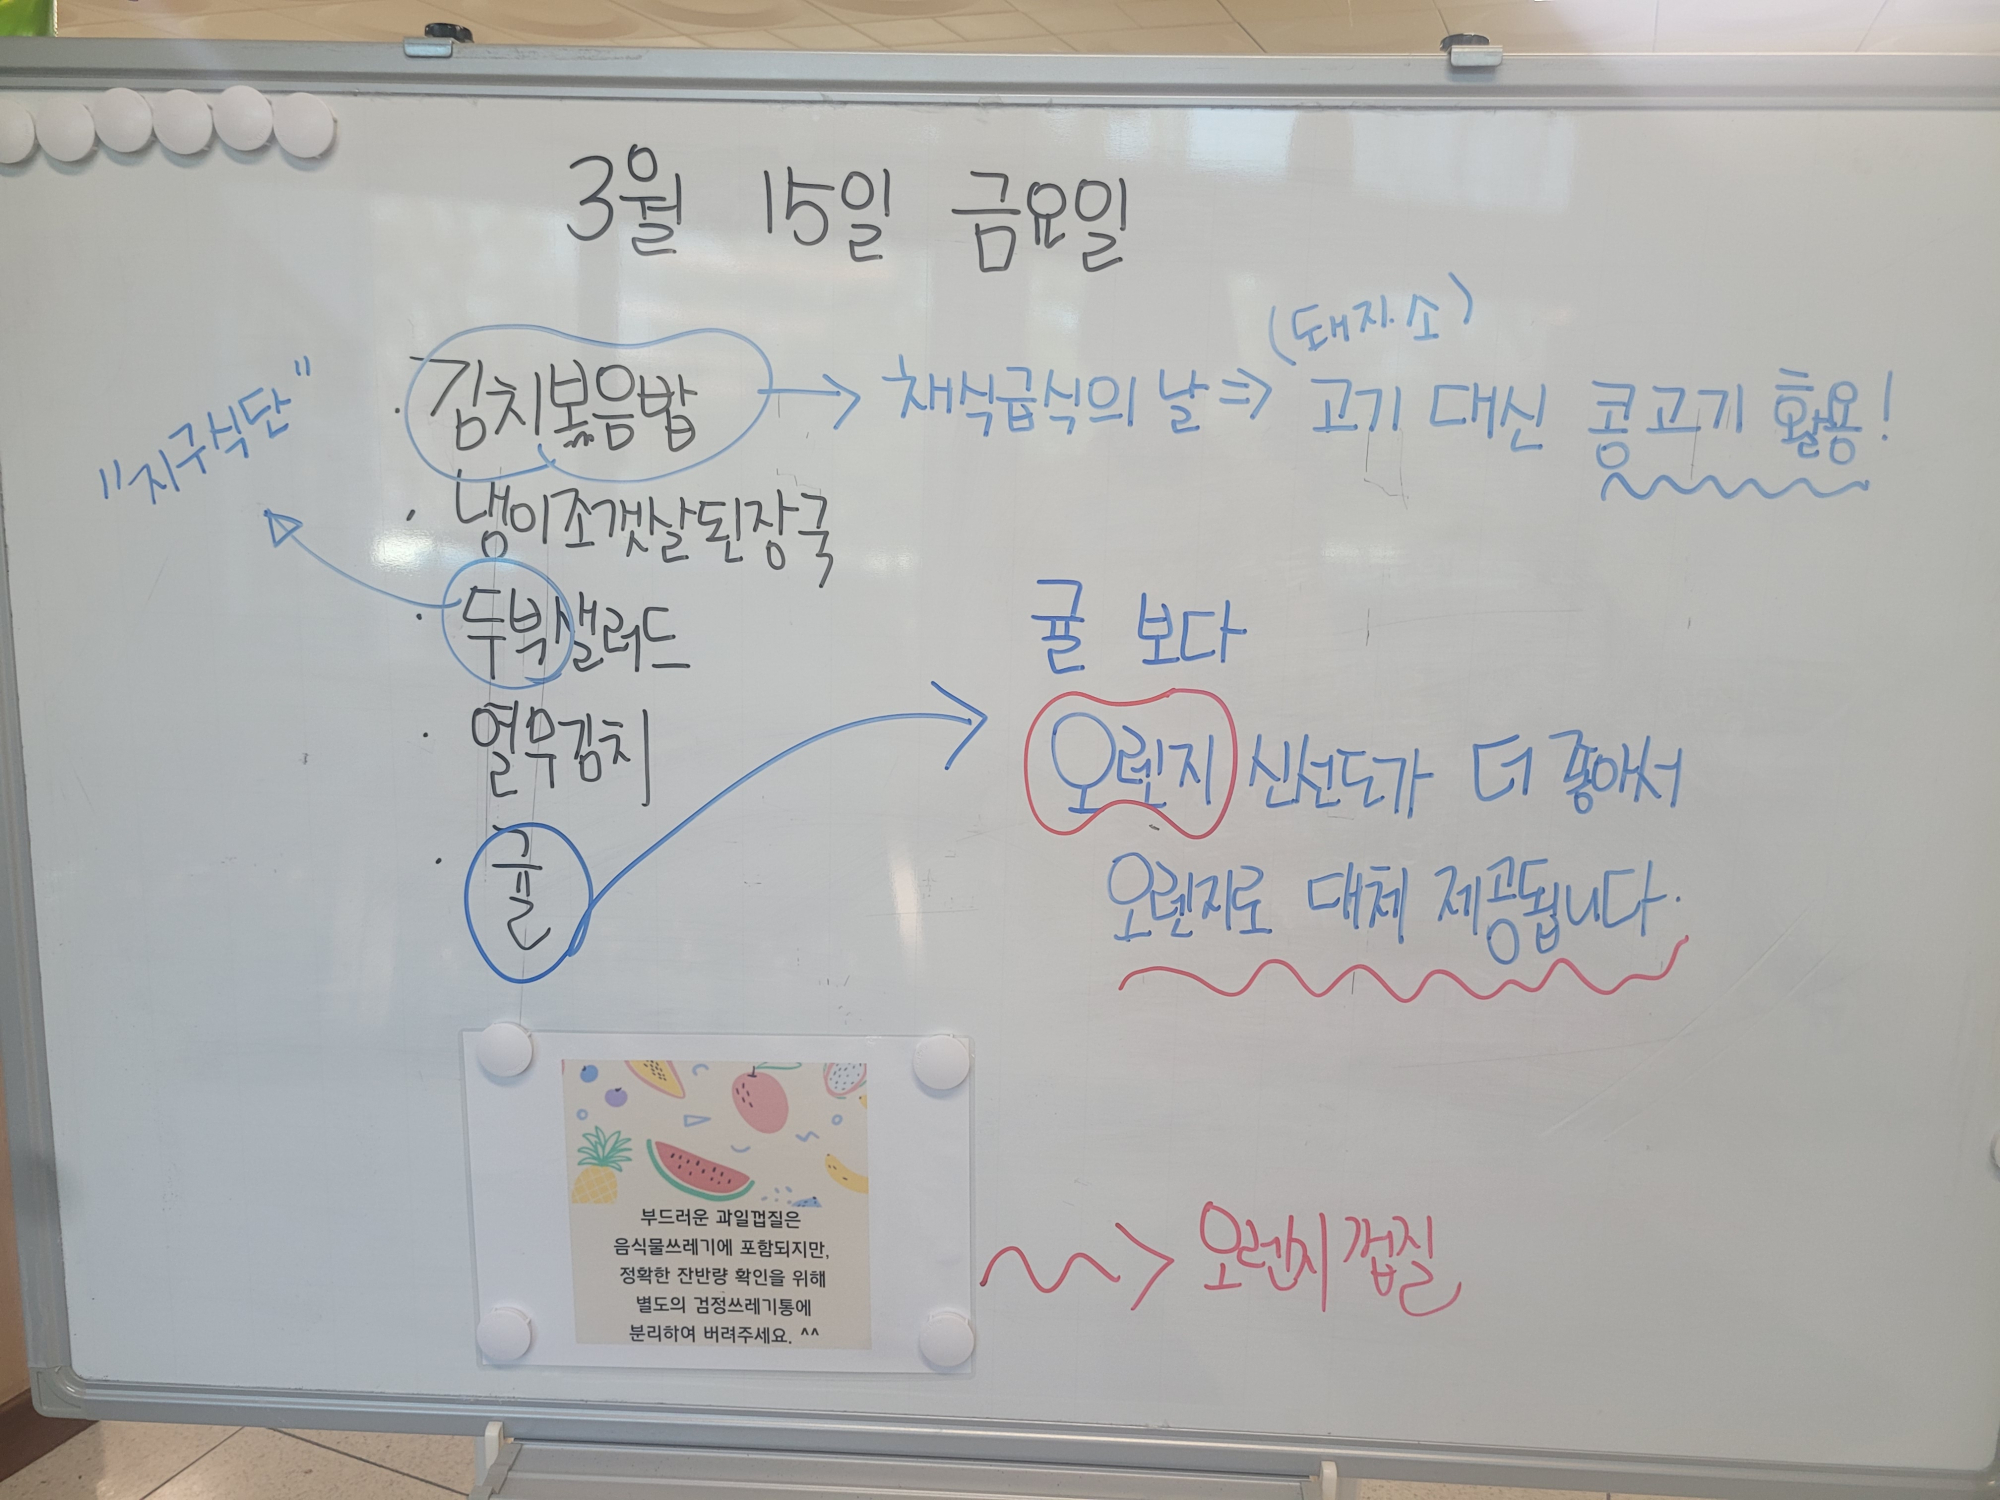 3월 15일 금요일
(돼지.소)
· 김치볶음밥 → 채식급식의 날 ⇒ 고기 대신 콩고기 활용!
"지구식단"
· 냉이조갯살된장국
· 두부샐러드
· 열무김치
· 귤
귤 보다
오렌지 신선도가 더 좋아서
오렌지로 대체 제공됩니다.
부드러운 과일껍질은
음식물쓰레기에 포함되지만,
정확한 잔반량 확인을 위해
별도의 검정쓰레기통에
분리하여 버려주세요. ^^
오렌지 껍질